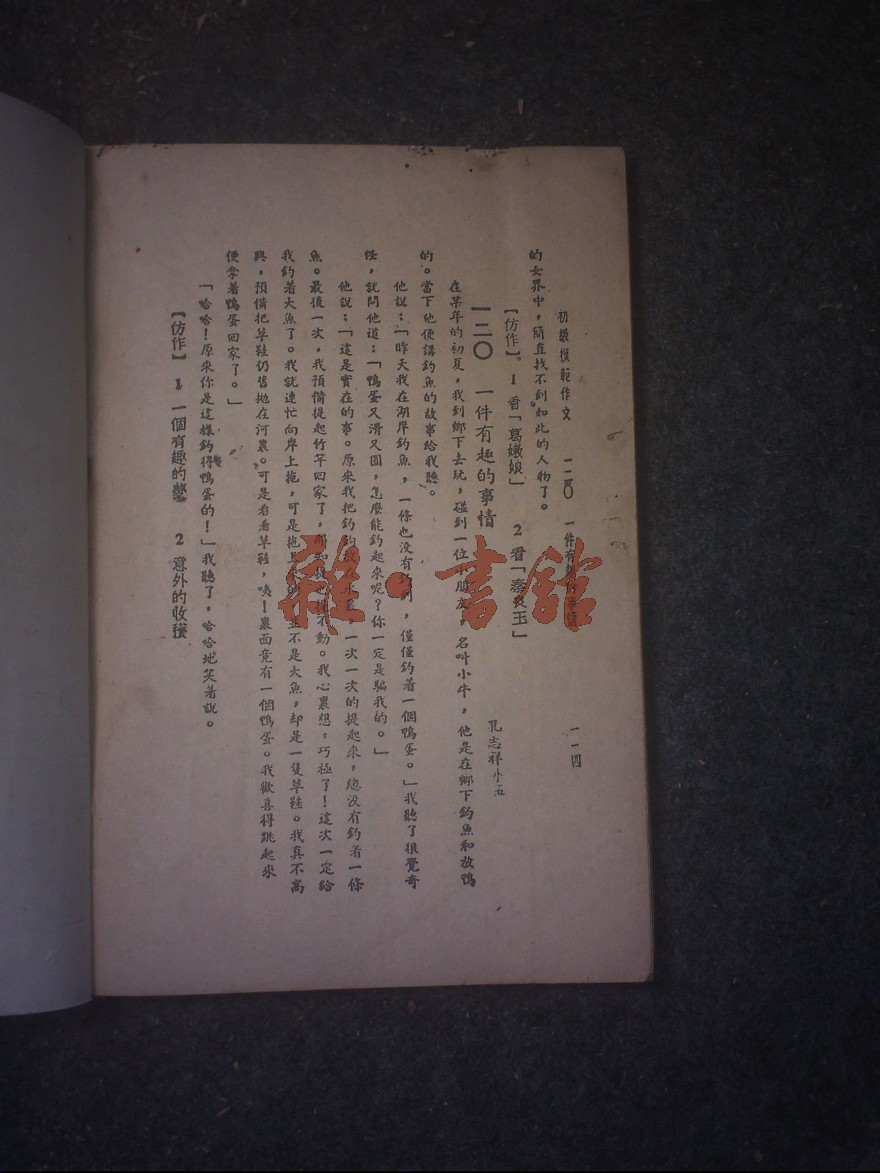 初級模範作文 一二〇 一件有趣的事情 一一四
的女界中，簡直找不到如此的人物了。
【仿作】 1 看「葛嫩娘」 2 看「秦良玉」
一二〇 一件有趣的事情
孔志祥 小五
在某年的初夏，我到鄉下去玩，碰到一位朋友，名叫小牛，他是在鄉下釣魚和放鴨
的。當下他便講釣魚的故事給我聽。
他說：「昨天我在湖岸釣魚，一條也沒有釣到，僅僅釣着一個鴨蛋。」我聽了很覺奇
怪，就問他道：「鴨蛋又滑又圓，怎麼能釣起來呢？你一定是騙我的。」
他說：「這是實在的事。原來我把釣鈎水裏，一次一次的提起來，總沒有釣着一條
魚。最後一次，我預備提起竹竿回家了，不動。我心裏想，巧極了！這次一定給
我釣着大魚了。我就連忙向岸上拖，可是拖上不是大魚，却是一隻草鞋。我真不高
興，預備把草鞋仍舊拋在河裏。可是看看草鞋，咦！裏面竟有一個鴨蛋。我歡喜得跳起來
便拿着鴨蛋回家了。」
「哈哈！原來你是這樣釣得鴨蛋的！」我聽了，哈哈地笑着說。
【仿作】 1 一個有趣的夢 2 意外的收穫
雜·書館